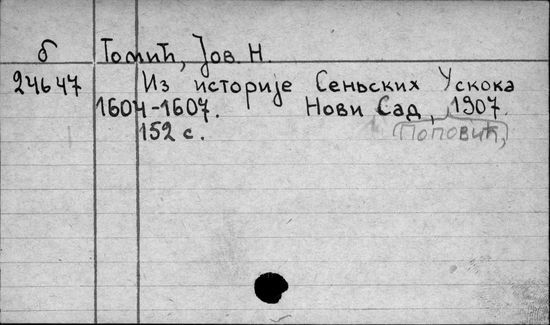 б Томић, Јов. Н.
24647 Из историје Сеньских Ускока
1604-1607. Нови Сад, 1907.
152 с. (Поповић,)